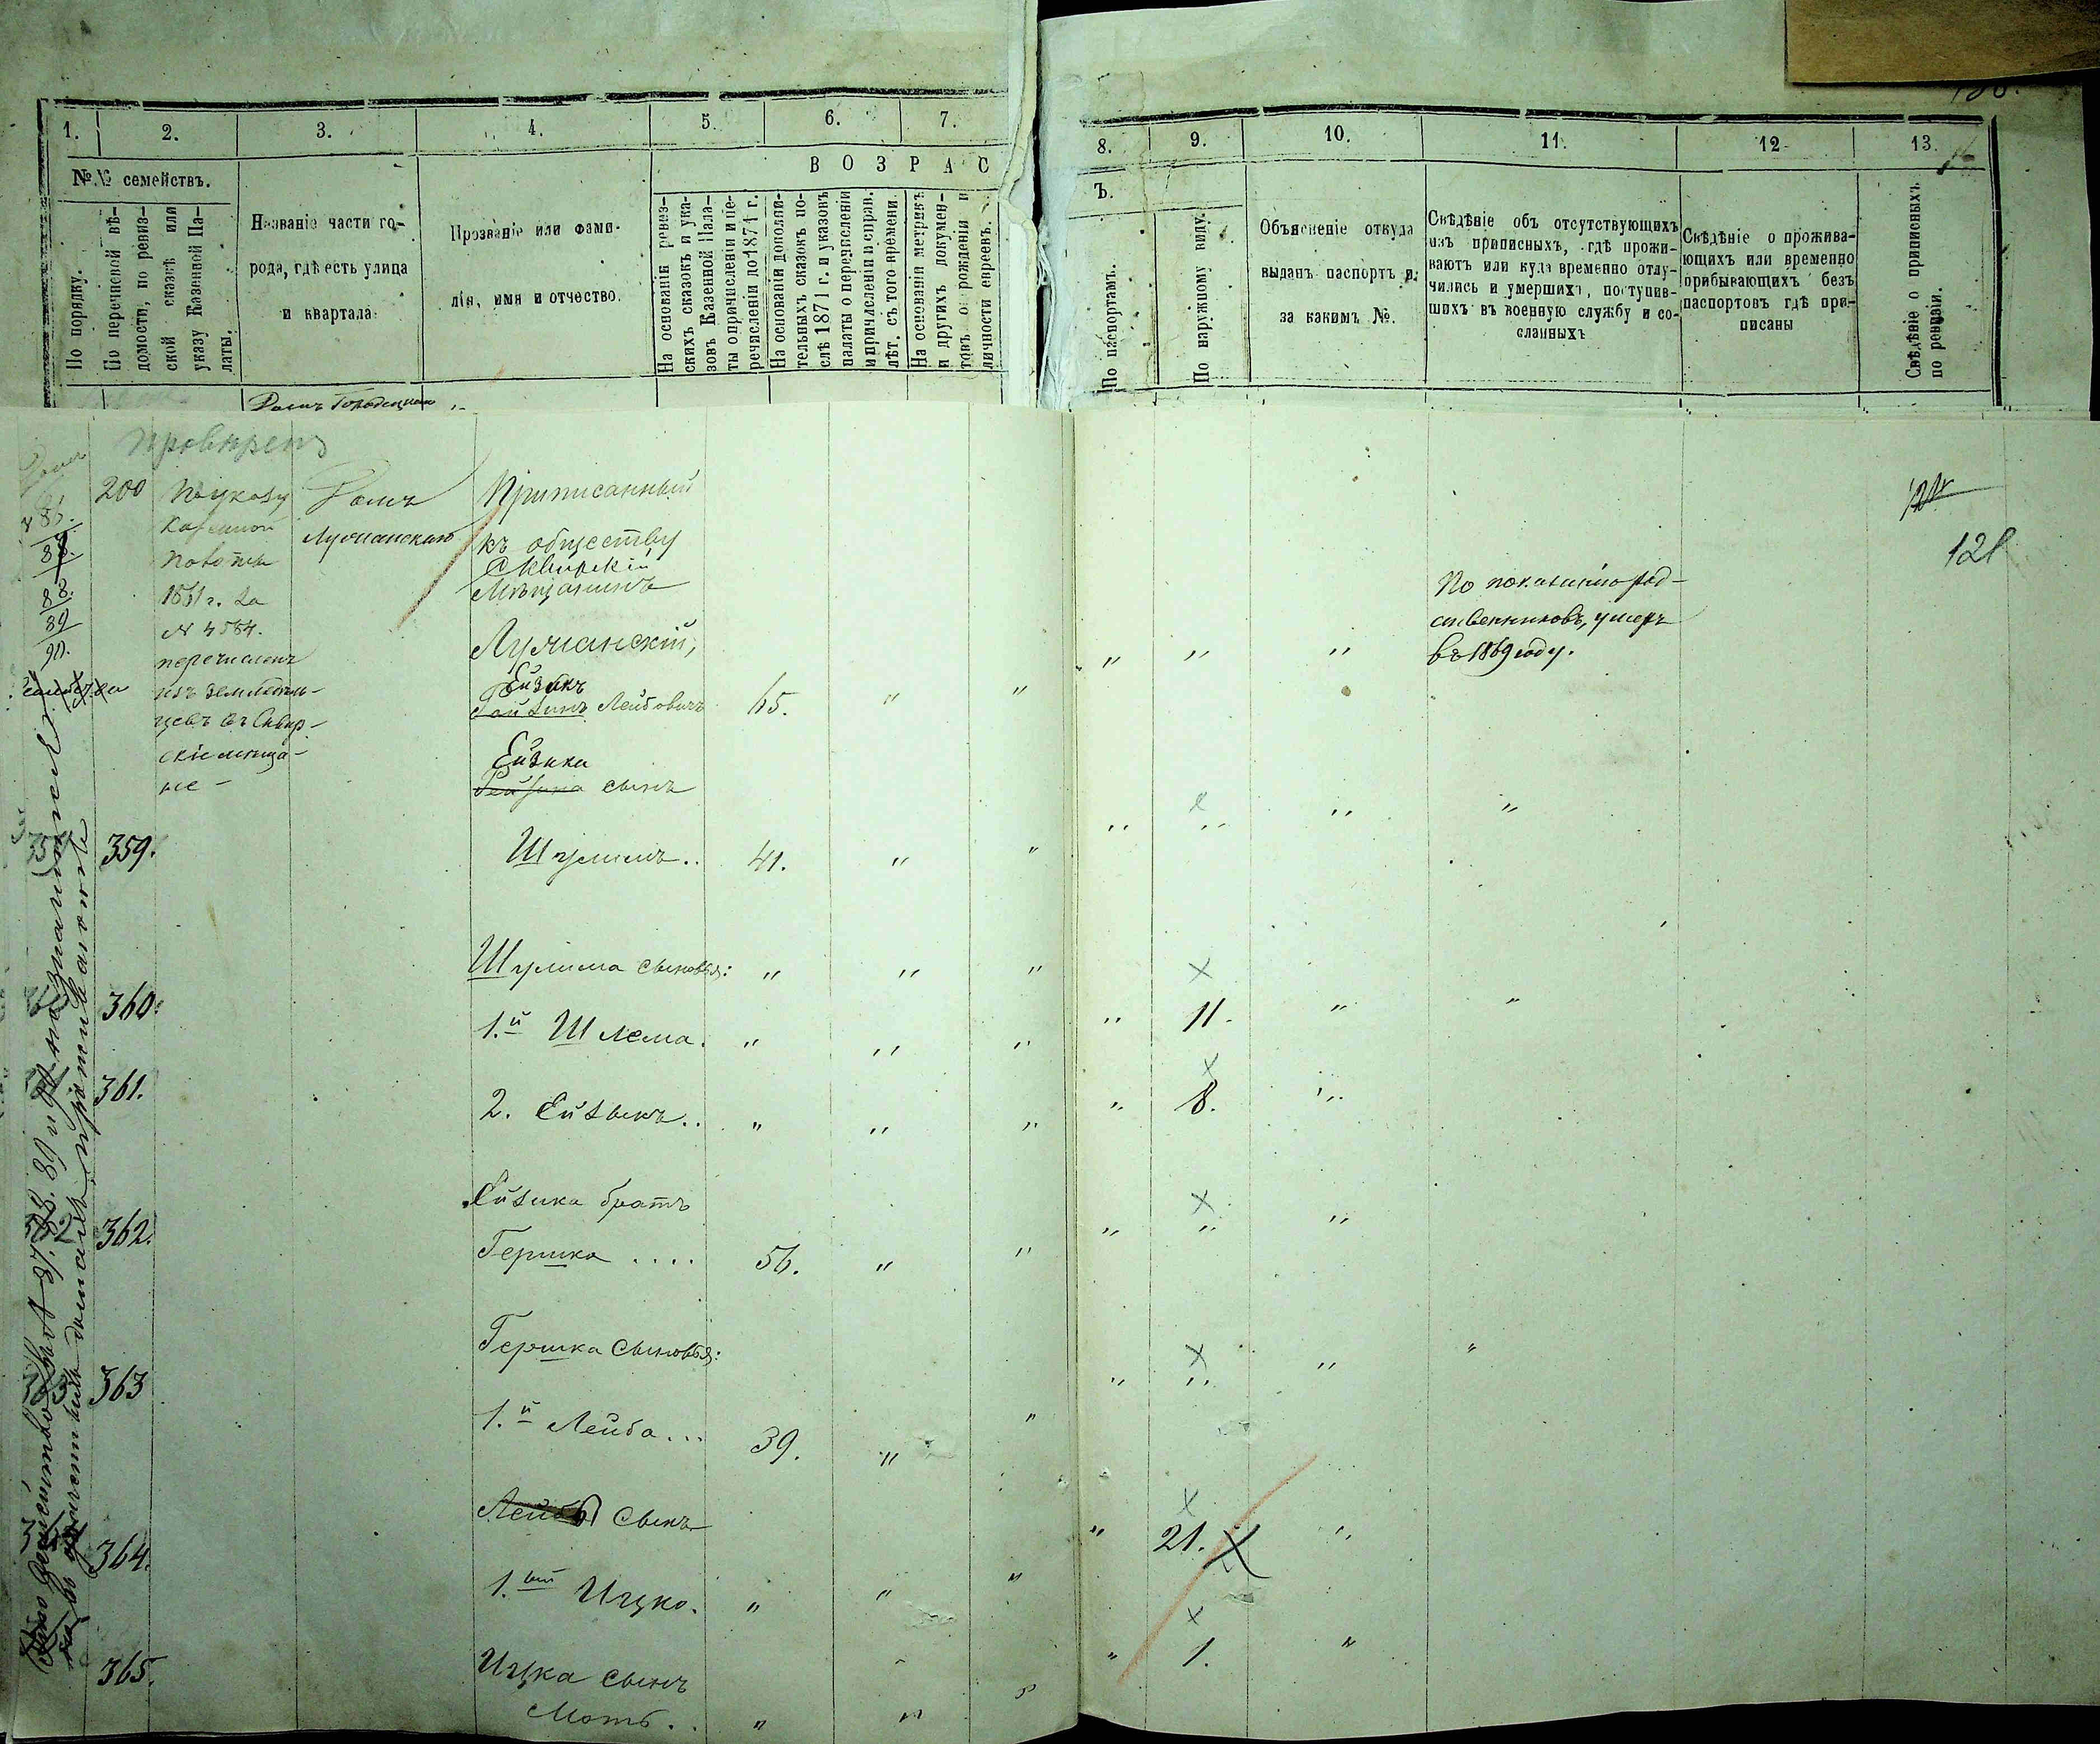 1. 2. 3. 4. 5. 6. 7.
№№ семействъ.
По порядку.
По перечневой вѣ-
домости, по ревиз-
ской сказкѣ или
указу Казенной Па-
латы.
Названіе части го-
рода, гдѣ есть улица
и квартала
Прозваніе или фами-
лія, имя и отчество.
ВОЗРАС
На основаніи ревиз-
скихъ сказокъ и ука-
зовъ Казенной Пала-
ты о причисленіи и пе-
речисленіи до 1871 г.
На основаніи дополни-
тельныхъ сказокъ по-
слѣ 1871 г. и указовъ
палаты о перечисленіи
и причисленіи и справ.
лѣт. съ того времени.
На основаніи метрикъ
и другихъ докумен-
товъ о рожденіи и
личности евреевъ.
8. 9. 10. 11. 12 13.
Ъ.
По паспортамъ.
По наружному виду.
Объясненіе откуда
выданъ паспортъ и
за какимъ №.
Свѣдѣніе объ отсутствующихъ
изъ приписныхъ, гдѣ прожи-
ваютъ или куда временно отлу-
чились и умершихъ, поступив-
шихъ въ военную службу и со-
сланныхъ
Свѣдѣніе о прожива-
ющихъ или временно
прибывающихъ безъ
паспортовъ гдѣ при-
писаны
Свѣдѣніе о приписныхъ
по ревизіи.
Домъ
провѣренъ
200 По указу Домъ Приписанный
Казенной Лучианскаго къ обществу
Палаты Сквирскій
1851 г. за Мѣщанинъ
№ 4584.
перечисленъ Лучанскій,
изъ земледѣль-
цевъ въ Сквир-
скіе мѣща-
не -
87.
88.
89
90.
Ейзикъ
Лейбовичъ 65. " "
" " "
По показанію род-
ственниковъ, умеръ
въ 1869 году.
121
Ейзика
сынъ
359. Шулимъ.. 41. " "
Шулима сыновья: " " "
360. 1.й Шлема. " " " " 11. " "
361. 2. Ейзыкъ.. " " " " 8. "
Ейзика братъ
362. Гершко .... 56. " "
Гершка сыновья:
363 1.й Лейба... 39. " "
Лейбы сынъ
364. 1.ый Ицко. " " " " 21. "
Ицка сынъ
365. Моть.. " " " " 1. "